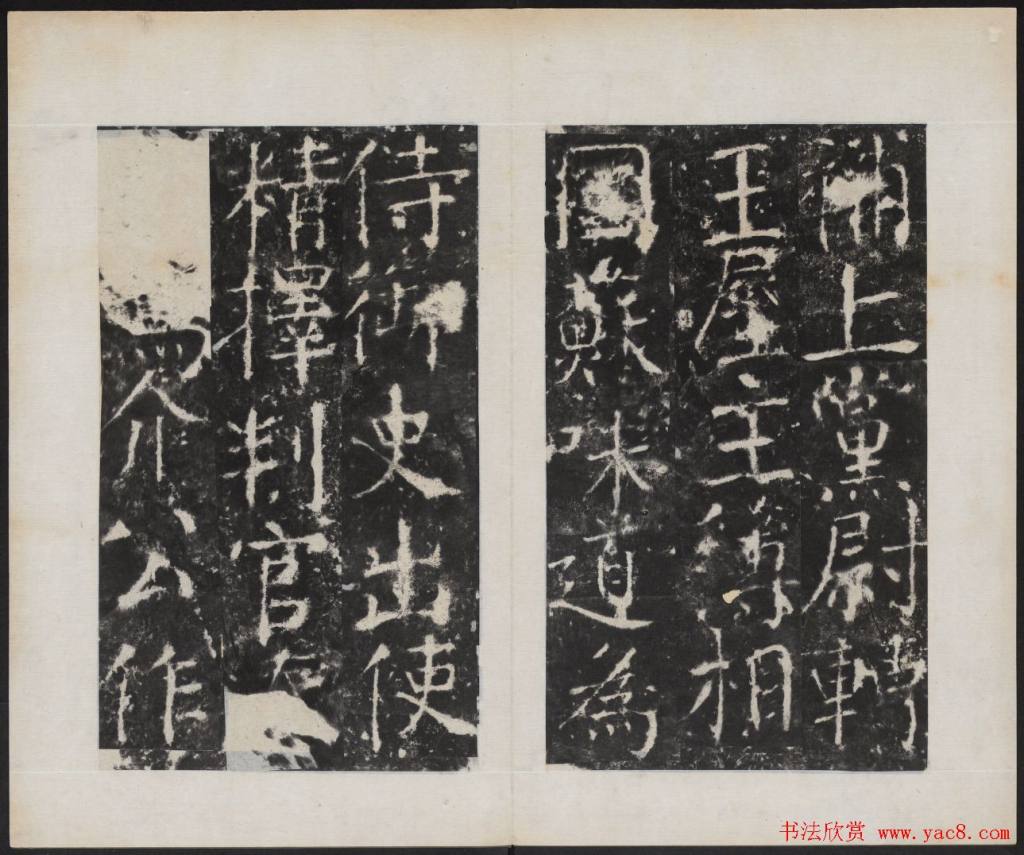 浦上黨尉轉
王屋主簿相
國蘇味道為
侍御史出使
精擇判官
介公作
书法欣赏 www.yac8.com